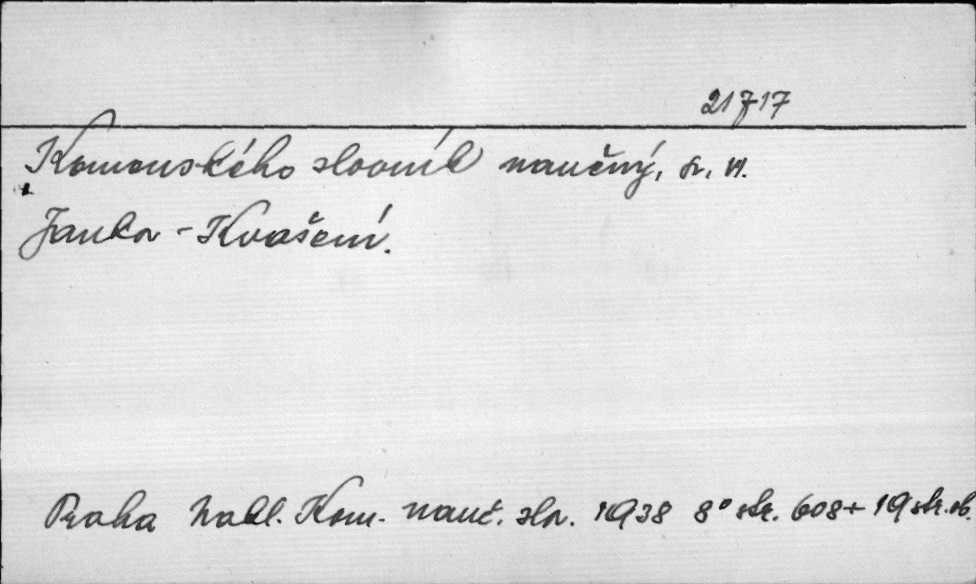 21717
Komenského slovník naučný, sv. VI.
Janka - Kvašení.
Praha Nakl. Kom. nauč. slov. 1938 8° str. 608 + 19 str. ob.